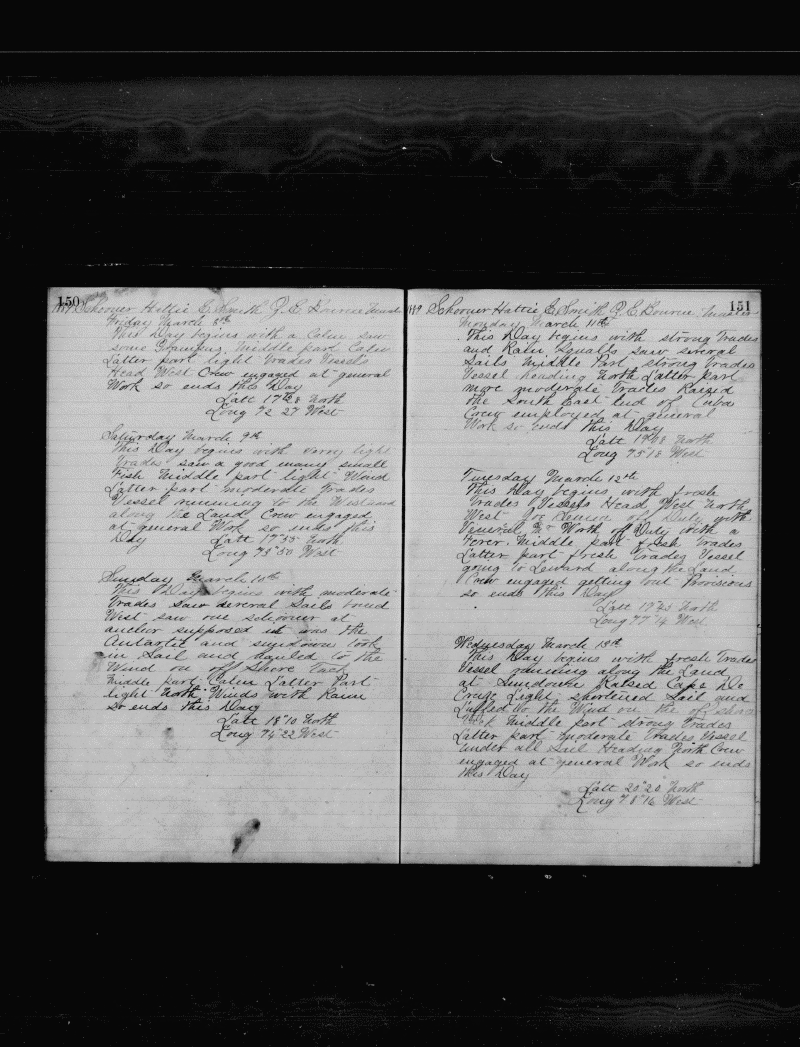 150
1889 Schooner Hattie E. Smith J. E. Bourne Master
Friday March 8th
This Day begins with a Calm saw
some Grampus Middle part Calm
Latter part light Trades Vessels
Head West Crew engaged at general
Work so ends this Day
Latt 17"28 North
Long 72 27 West
Saturday March 9th
This Day begins with verry light
Trades saw a good many small
Fish Middle part light Wind
Latter part moderate Trades
Vessel running to the Westward
along the Land Crew engaged
at general Work so ends this
Day Latt 17"55 North
Long 73"50 West
Sunday March 10th
This Day begins with moderate
Trades saw several Sails bound
West saw one schooner at
anchor supposed it was the
Antartic and sundown took
in Sail and hauled to the
Wind on off Shore Tack
Middle part Calm Latter Part
light North Winds with Rain
so ends this Day
Latt 18"10 North
Long 74"22 West
151
1889 Schooner Hattie E. Smith J. E. Bourne Master
Monday March 11th
This Day begins with strong Trades
and Rain Squalls saw several
Sails Middle Part strong Trades
Vessel heading North Latter part
more moderate Trades Raised
the South East End of Cuba
Crew employed at general
Work so ends this Day
Latt 19"08 North
Long 75"18 West
Tuesday March 12th
This Day begins with fresh
Trades Vessels Head West North
West off Duty with
off Duty with a
Fever Middle part fresh Trades
Latter part fresh Trades Vessel
going to Leward along the Land
Crew engaged getting out Provisions
so ends This Day
Latt 19"45 North
Long 77"14 West
Wednesday March 13th
This Day begins with fresh Trades
Vessel running along the Land
at Sundown Raised Cape De
Cruz Light shortened Sail and
Luffed to the Wind on the of shore
Tack Middle part strong Trades
Latter part moderate Trades Vessel
under all Sail Heading North Crew
engaged at general Work so ends
this Day
Latt 20"20 North
Long 78"16 West